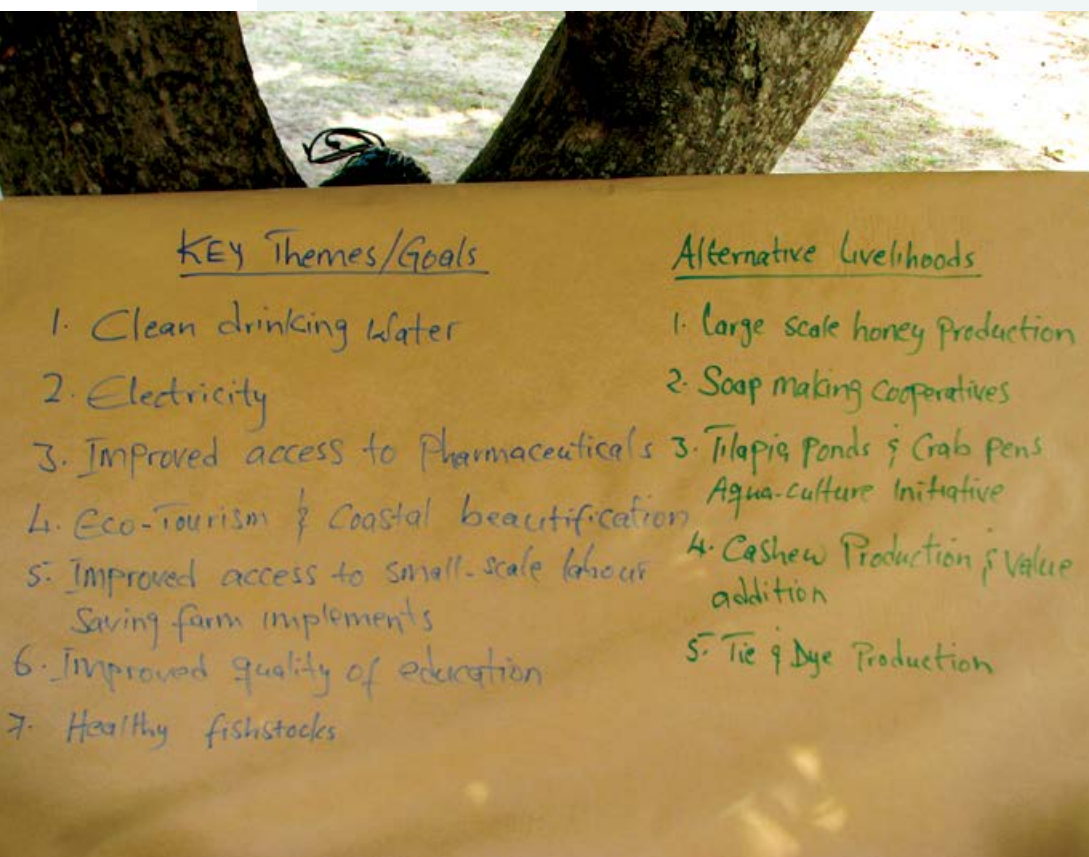 KEY Themes/Goals
1. Clean drinking water
2. Electricity
3. Improved access to Pharmaceuticals
4. Eco-Tourism & Coastal beautification
5. Improved access to small-scale labour
Saving farm implements
6. Improved quality of education
7. Healthy fishstocks
Alternative Livelihoods
1. Large scale honey Production
2. Soap making cooperatives
3. Tilapia Ponds & Crab pens
Aqua-culture Initiative
4. Cashew Production & Value
addition
5. Tie & Dye Production